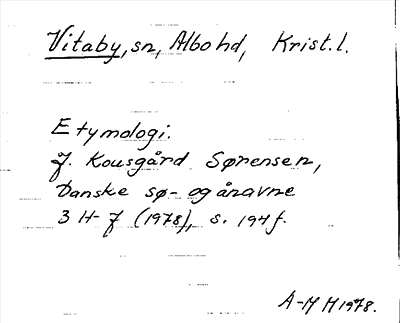 Vitaby, sn, Albo hd, Krist. l.
Etymologi.
J. Kousgård Sørensen,
Danske sø- og ånavne
3 H-J (1978), s. 194 f.
A-M M 1978.